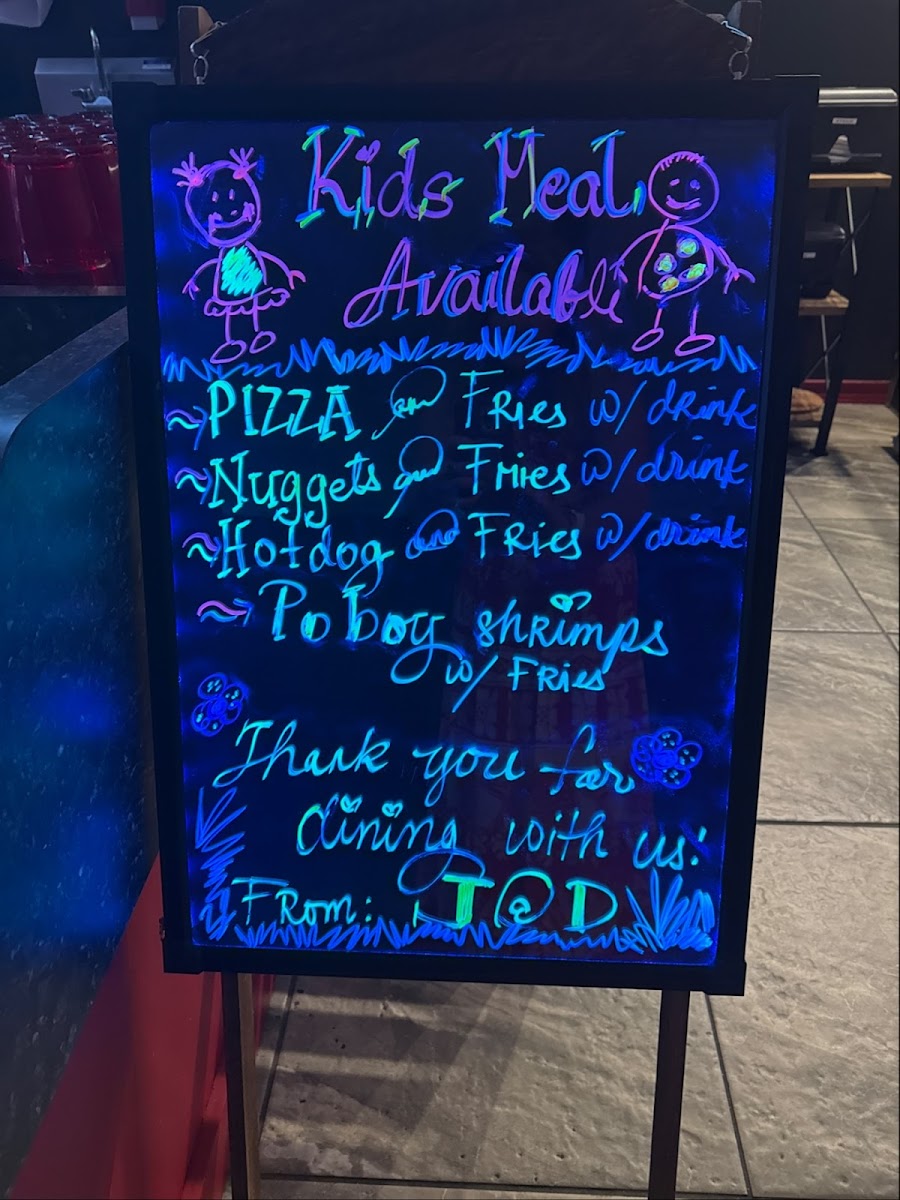 Kids Meal
Available
~ PIZZA and Fries w/ drink
~ Nuggets and Fries w/ drink
~ Hotdog and Fries w/ drink
~ Po boy shrimps
w/ Fries
Thank you for
dining with us!
From: J@D